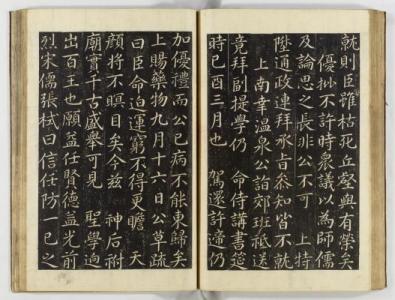 就則臣雖枯死丘壑與有榮矣
優批不許時衆議以為師儒
及論思之長非公不可 上特
陞通政連拜承旨叅知皆不就
上南幸溫泉公詣郊班祗送
竟拜副提學仍 命侍講書筵
時己酉三月也 駕還許遞仍
加優禮而公已病不能東歸矣
上賜藥物九月十六日公草疏
曰臣命迫運窮不得更瞻 天
顔將不瞑目矣今玆 神后祔
廟實千古盛舉可見 聖學逈
出百王也願益任賢德益光前
烈宋儒張栻曰信任防一己之